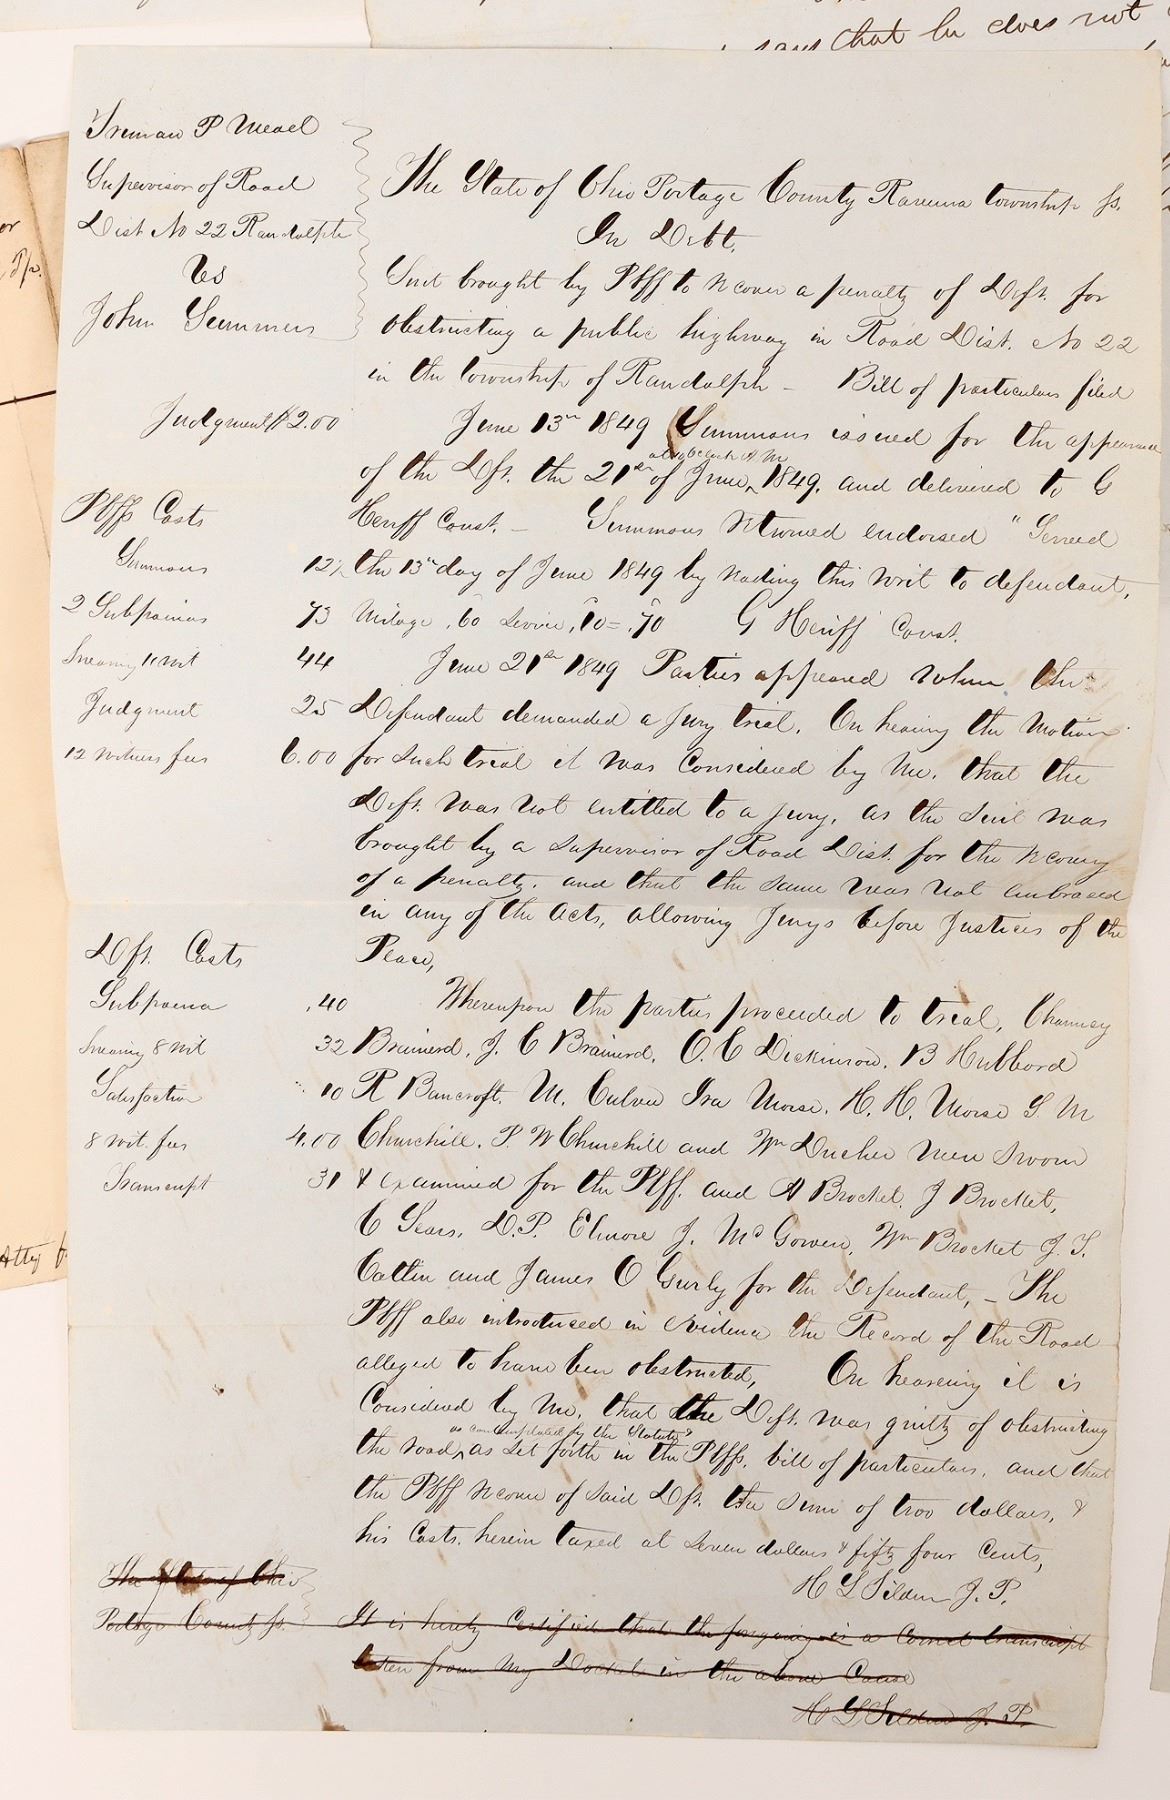 says that he does not
Truman P Mead
Supervisor of Road
Dist No 22 Randolph
vs
John Summers
Judgment $2.00
Plffs Costs
Summons 12½
2 Subpoenas 73
Swearing 11 wit 44
Judgment 25
12 witness fees 6.00
Dft. Costs
Subpoena .40
Swearing 8 wit 32
Satisfaction 10
8 wit. fees 4.00
Transcript 31
The State of Ohio Portage County Ravenna township ss.
In Debt.
Suit brought by Plff to recover a penalty of Deft. for
obstructing a public highway in Road Dist. No 22
in the township of Randolph - Bill of particulars filed
June 13th 1849 Summons issued for the appearance
of the Dft. the 21st of June, at 10 o'clock A M 1849. and delivered to G
Heriff Const. - Summons returned endorsed "Served
the 13th day of June 1849 by reading this writ to defendant,
Milage .60 Service, 10 = .70 G Heriff Const.
June 21st 1849 Parties appeared when the
Defendant demanded a jury trial. On hearing the motion
for such trial it was considered by me. that the
Deft. was not entitled to a jury, as the suit was
brought by a supervisor of Road Dist. for the recovery
of a penalty. and that the same was not embraced
in any of the acts, allowing Jurys before Justices of the
Peace,
Whereupon the parties proceeded to trial, Chauncey
Brainerd, J. C Brainerd, O. C Dickinson, B Hubbard
R Bancroft. M. Culver Ira Morse, H. H. Morse G M
Churchill. P. W Churchill and Wm Ducher were sworn
& examined for the Plff. and A Brocket. J Brocket,
C Sears, D. P. Elmore J. McGowen, Wm Brocket J. T.
Catlin and James O Gurly for the Defendant, - The
Plff also introduced in evidence the Record of the Road
alleged to have been obstructed, On hearing it is
Considered by me, that the Deft. was guilty of obstructing
the road, as contemplated by the Statute as set forth in the Plffs. bill of particulars, and that
the Plff recover of said Dft. the sum of two dollars, &
his Costs. herein taxed at seven dollars & fifty four Cents,
H L Silden J. P.
The State of Ohio
Portage County ss. It is hereby certified that the foregoing is a Correct transcript
taken from my Docket in the above Cause
H L Silden J. P.
Atty